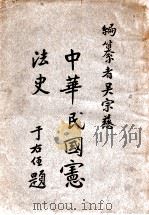 編纂者吳宗慈
中華民國憲
法史
于右任題